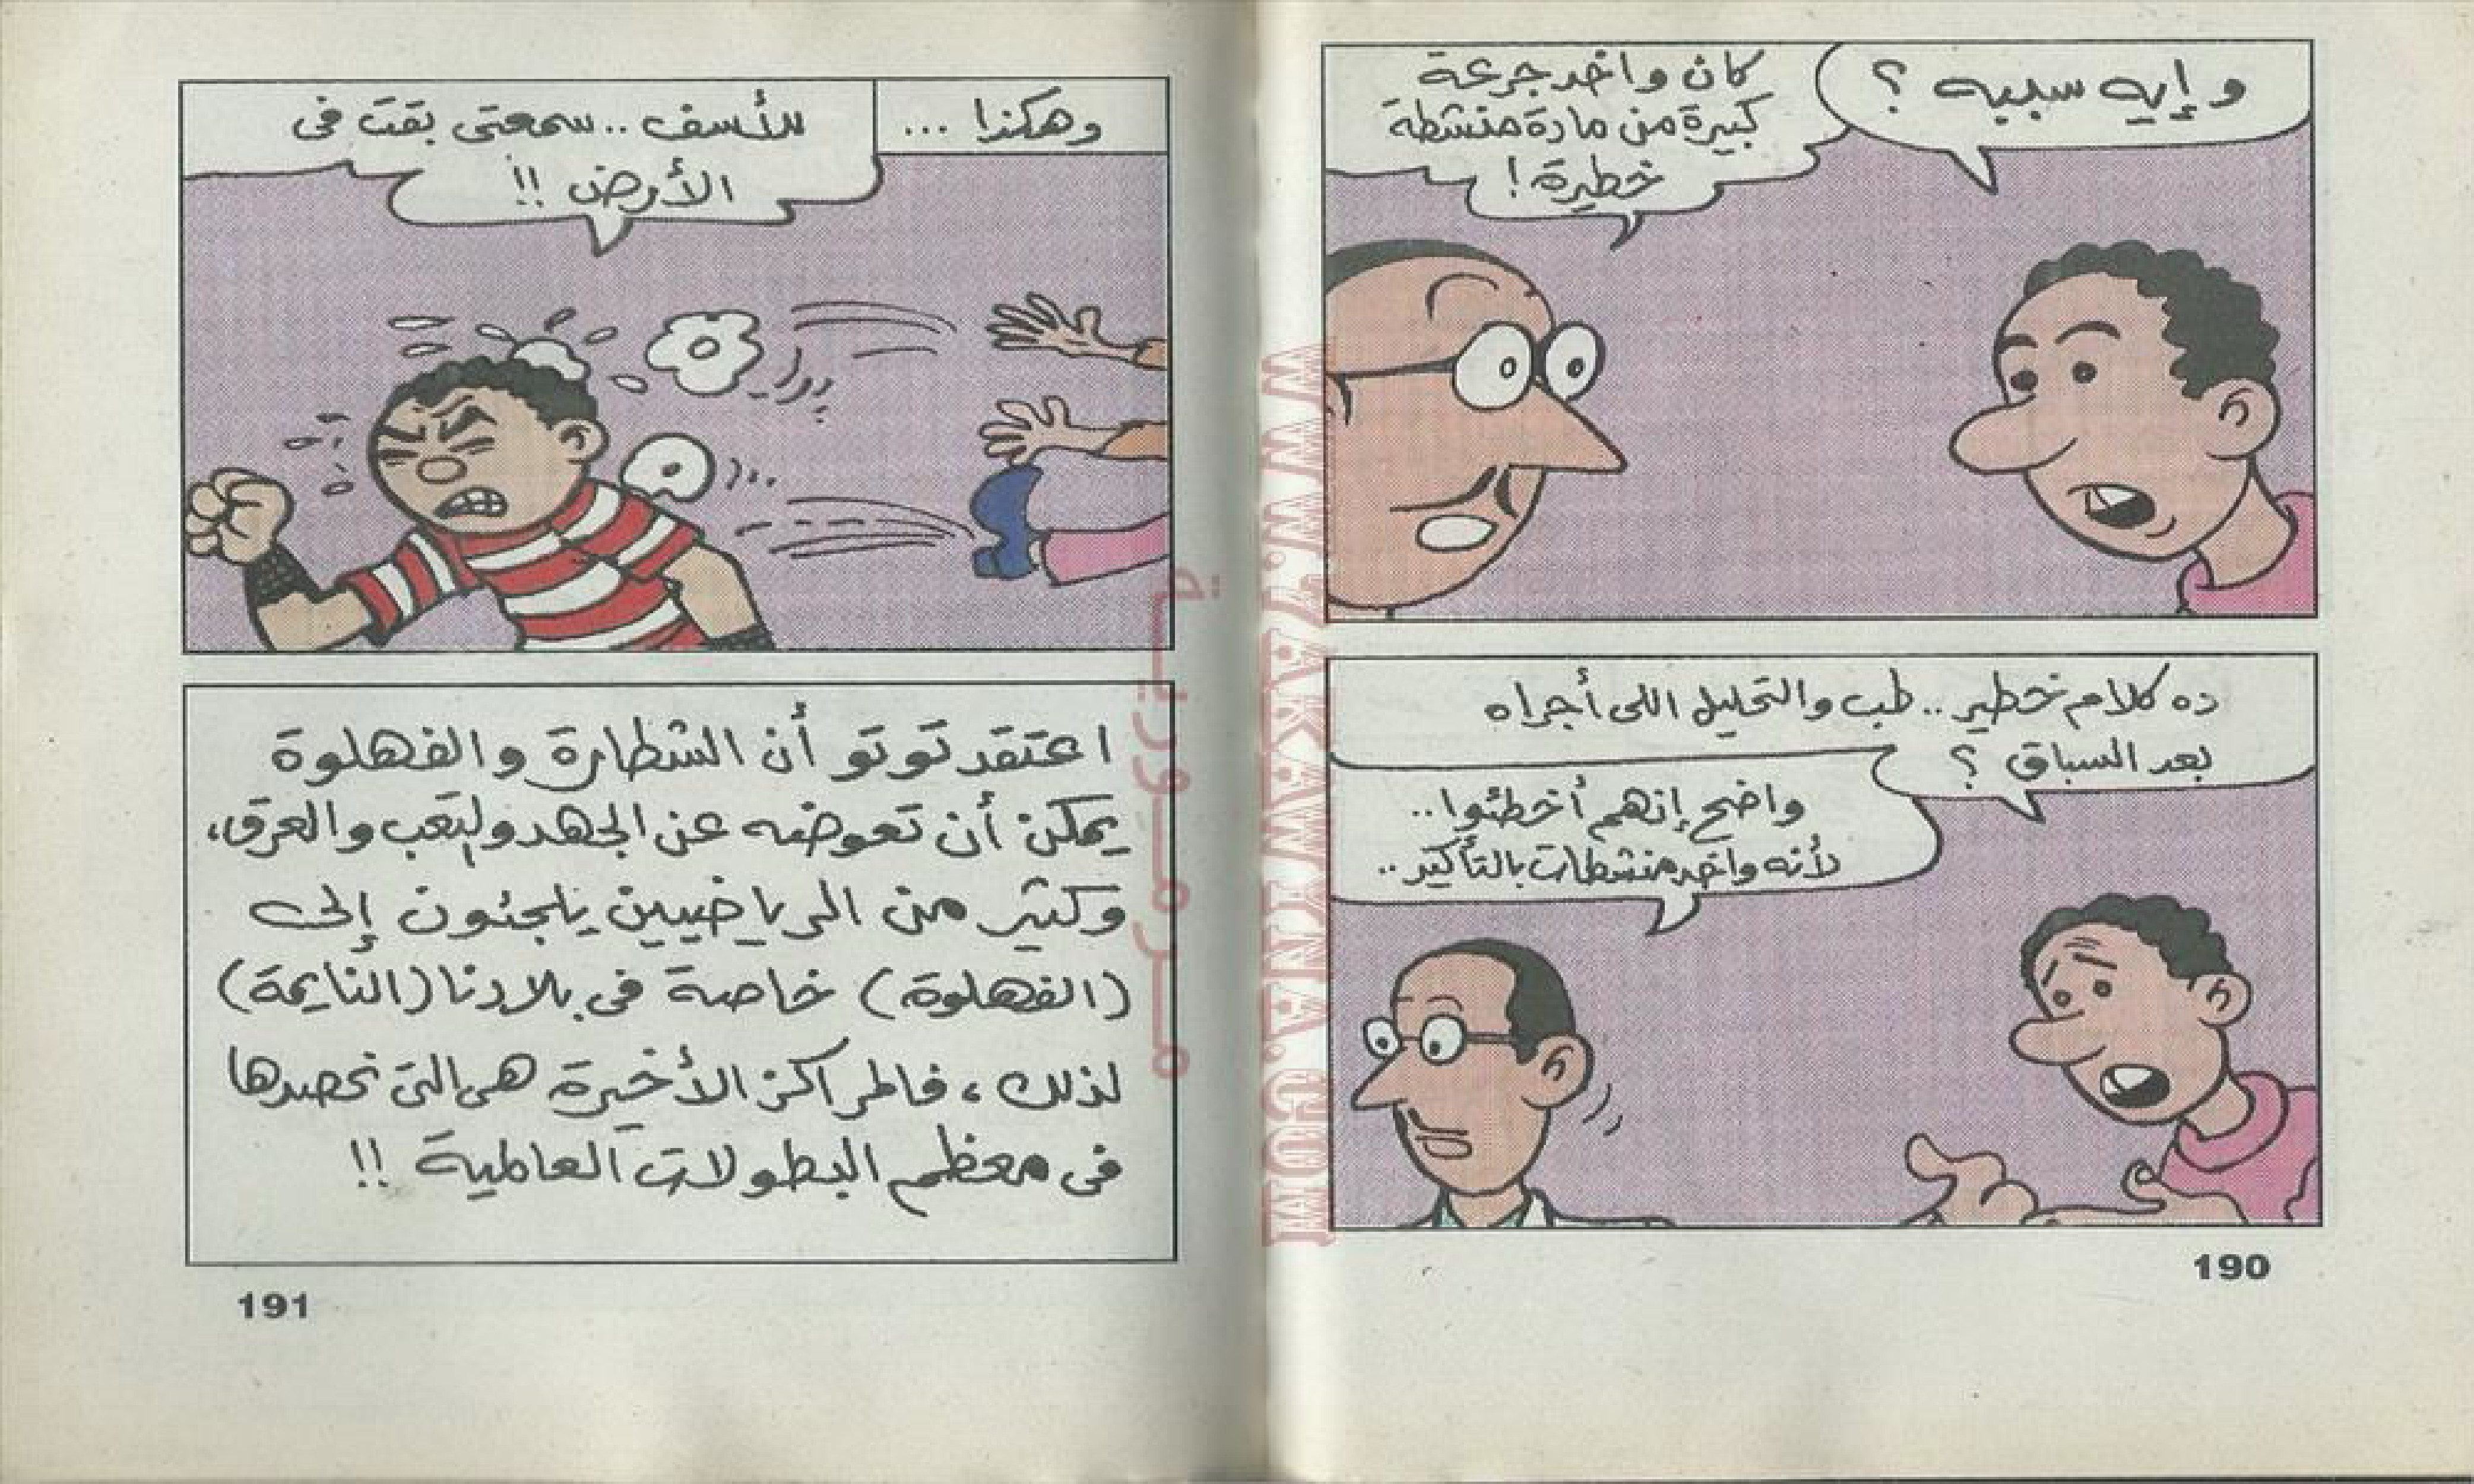 و إيه سببه ؟
كان واخد جرعة
كبيرة من مادة منشطة
خطيرة !
ده كلام خطير .. طب والتحليل اللى أجراه
بعد السباق ؟
واضح إنهم أخطئوا ..
لأنه واخد منشطات بالتأكيد ..
190
وهكذا ...
للأسف .. سمعتى بقت فى
الأرض !!
اعتقد توتو أن الشطارة والفهلوة
يمكن أن تعوضه عن الجهد والتعب والعرق،
وكثير من الرياضيين يلجئون إلى
(الفهلوة) خاصة فى بلادنا (النايمة)
لذلك ، فالمراكز الأخيرة هى التى نحصدها
فى معظم البطولات العالمية !!
191
مرمورية